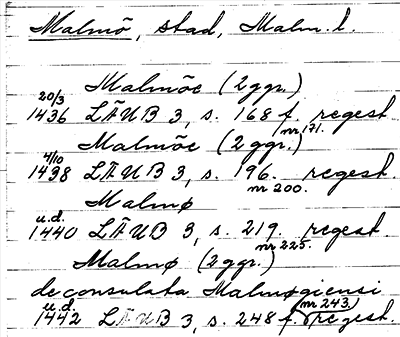 Malmö, stad, Malm. l.
Malmöe (2 ggr.)
20/3
1436 LÄUB 3, s. 168 f. regest.
nr 171.
Malmöe (2 ggr.)
4/10
1438 LÄUB 3, s. 196. regest.
nr 200.
Malmø
u.d.
1440 LÄUB 3, s. 219. regest.
nr 225.
Malmø (2 ggr.)
de consulata Malmøgiensi
u.d.
(nr 243.)
1442 LÄUB 3, s. 248 f. regest.